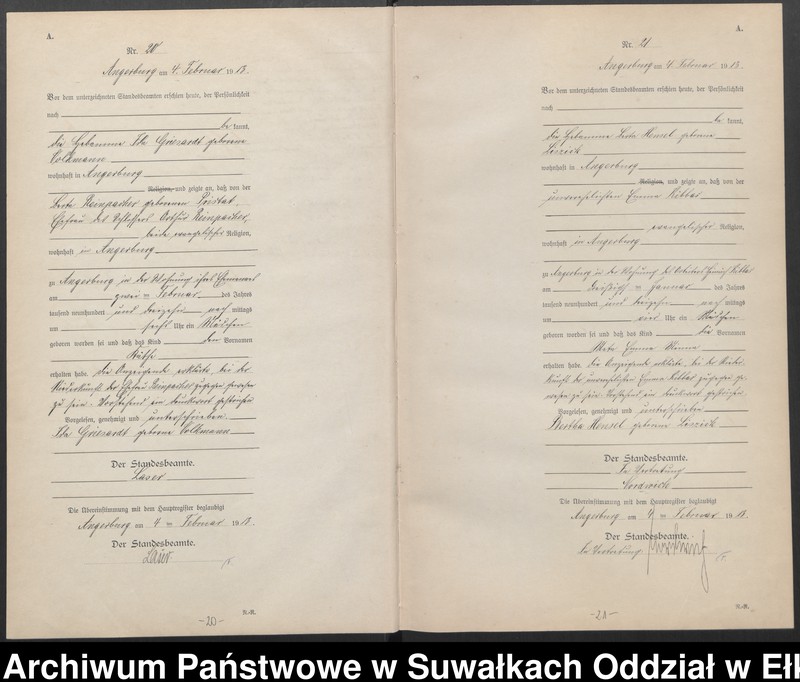 A.
Nr. 20
Angerburg am 4. Februar 1913.
Vor dem unterzeichneten Standesbeamten erschien heute, der Persönlichkeit
nach
be kannt,
die Hebamme Ida geborene
Volkmann
wohnhaft in Angerburg
Religion, und zeigte an, daß von der
geborenen
Ehefrau des Schlossers Arthur
beide evangelischer Religion,
wohnhaft in Angerburg
zu Angerburg in der Wohnung ihres Ehemannes
am zwei ten Februar des Jahres
tausend neunhundert und dreizehn nach mittags
um sechs Uhr ein Mädchen
geboren worden sei und daß das Kind den Vornamen
Käthe
erhalten habe. Die Anzeigende erklärte, bei der
Niederkunft der Ehefrau zugegen gewesen
zu sein. Vorstehend ein Druckwort gestrichen
Vorgelesen, genehmigt und unterschrieben
Ida geborene Volkmann
Der Standesbeamte.
Laser
Die Übereinstimmung mit dem Hauptregister beglaubigt
Angerburg am 4 ten Februar 1913.
Der Standesbeamte.
Laser
R.-R.
-20-
A.
Nr. 21
Angerburg am 4. Februar 1913.
Vor dem unterzeichneten Standesbeamten erschien heute, der Persönlichkeit
nach
be kannt,
die Hebamme Hensel geborene
wohnhaft in Angerburg
Religion, und zeigte an, daß von der
unverehelichten Emma Kittar
evangelischer Religion,
wohnhaft in Angerburg
zu Angerburg in der Wohnung des Arbeiters Kittar
am dreißig ten Januar des Jahres
tausend neunhundert und dreizehn nach mittags
um Uhr ein Mädchen
geboren worden sei und daß das Kind die Vornamen
Meta Emma Minna
erhalten habe. Die Anzeigende erklärte, bei der Nieder-
kunft der unverehelichten Emma Kittar zugegen ge-
wesen zu sein. Vorstehend ein Druckwort gestrichen
Vorgelesen, genehmigt und unterschrieben
Hensel geborene
Der Standesbeamte.
In Vertretung
Die Übereinstimmung mit dem Hauptregister beglaubigt
Angerburg am 4 ten Februar 1913.
Der Standesbeamte.
In Vertretung
R.-R.
-21-
Archiwum Państwowe w Suwałkach Oddział w Ełk